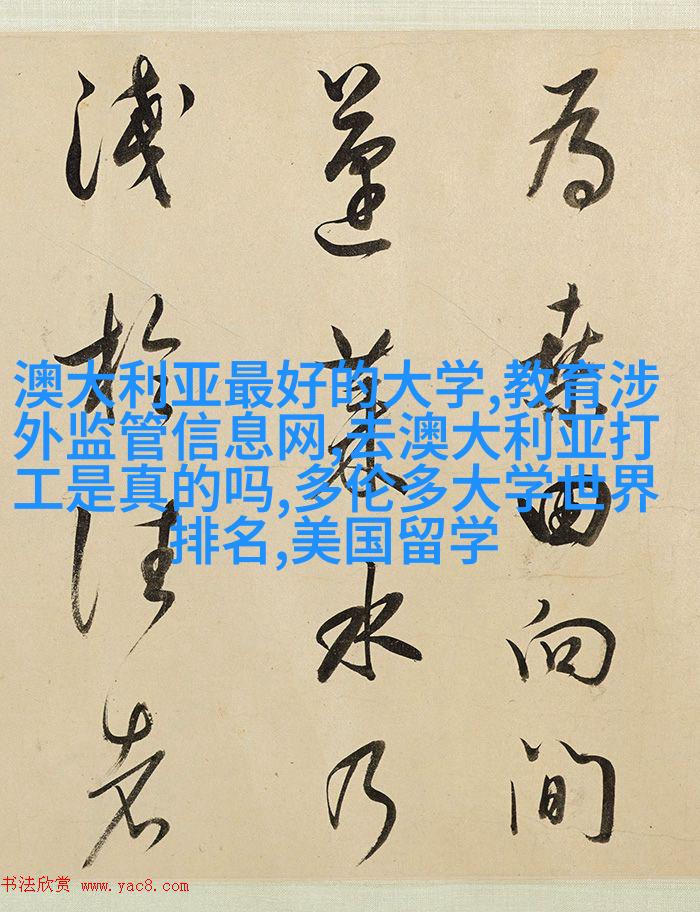 為桑田向間
蓬萊水乃
淺於往者
澳大利亚最好的大学,教育涉
外监管信息网,去澳大利亚打
工是真的吗,多伦多大学世界
排名,美国留学
书法欣赏 www.yac8.com